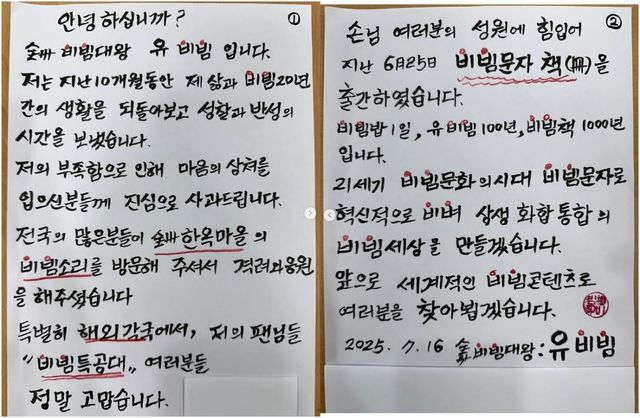 ①
안녕 하십니까?
비빔대왕 유 비빔 입니다.
저는 지난 10개월동안 제 삶과 비빔20년
간의 생활을 되돌아보고 성찰과 반성의
시간을 보냈습니다.
저의 부족함으로 인해 마음의 상처를
입으신분들께 진심으로 사과드립니다.
전국의 많은분들이 한옥마을의
비빔소리를 방문해 주셔서 격려와응원
을 해주셨습니다
특별히 해외각국에서, 저의 팬님들
"비빔특공대„ 여러분들
정말 고맙습니다.
②
손님 여러분의 성원에 힘입어
지난 6月25日 비빔문자 책(冊)을
출간하였습니다.
비빔밥1일, 유비빔100년, 비빔책1000년
입니다.
21세기 비빔문화의시대 비빔문자로
혁신적으로 비벼 상생 화합 통합의
비빔세상을 만들겠습니다.
앞으로 세계적인 비빔콘텐츠로
여러분을 찾아뵙겠습니다.
2025. 7. 16 비빔대왕: 유 비빔